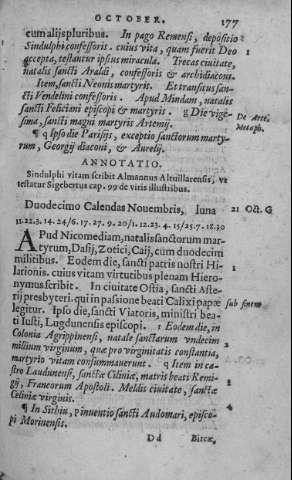 OCTOBER. 177
cum alijs pluribus. In pago Remensi, depositio
Sindulphi confessoris. cuius vita, quam fuerit Deo
accepta, testantur ipsius miracula. Trecas ciuitate,
natalis sancti Araldi, confessoris & archidiaconi.
Item, sancti Neonis martyris. Et transitus san-
cti Vendelini confessoris. Apud Mindam, natalis
sancti Feliciani episcopi & martyris. g Die vige-
sima, sancti magni martyris Artemij.
De Arte.
Metaph.
¶ q Ipso die Parisijs, exceptio sanctorum marty-
rum, Georgij diaconi, & Aurelij.
ANNOTATIO.
Sindulphi vitam scribit Almannus Altuillarensis, vt
testatur Sigebertus cap. 99 de viris illustribus.
Duodecimo Calendas Nouembris, luna
21 Oct. G
11.22.3.14.24/6.17.27.9.20/1.12.23.4.15/25.7.18.30
APud Nicomediam, natalis sanctorum mar-
tyrum, Dasij, Zotici, Caij, cum duodecim
militibus. Eodem die, sancti patris nostri Hi-
larionis. cuius vitam virtutibus plenam Hiero-
nymus scribit. In ciuitate Ostia, sancti Aste-
rij presbyteri. qui in passione beati Calixti papæ
legitur. Ipso die, sancti Viatoris, ministri bea-
ti Iusti, Lugdunensis episcopi. Eodem die, in
Colonia Agrippinensi, natale sanctarum vndecim
milium virginum, quæ pro virginitatis constantia,
martyrio vitam consummauerunt. q Item in ca-
stro Laudunensi, sanctæ Ciliniæ, matris beati Remi-
gij, Francorum Apostoli. Meldis ciuitate, sanctæ
Celiniæ virginis.
¶ In Sithiu, inuentio sancti Audomari, episco-
pi Morinensis.
Dd Birca,